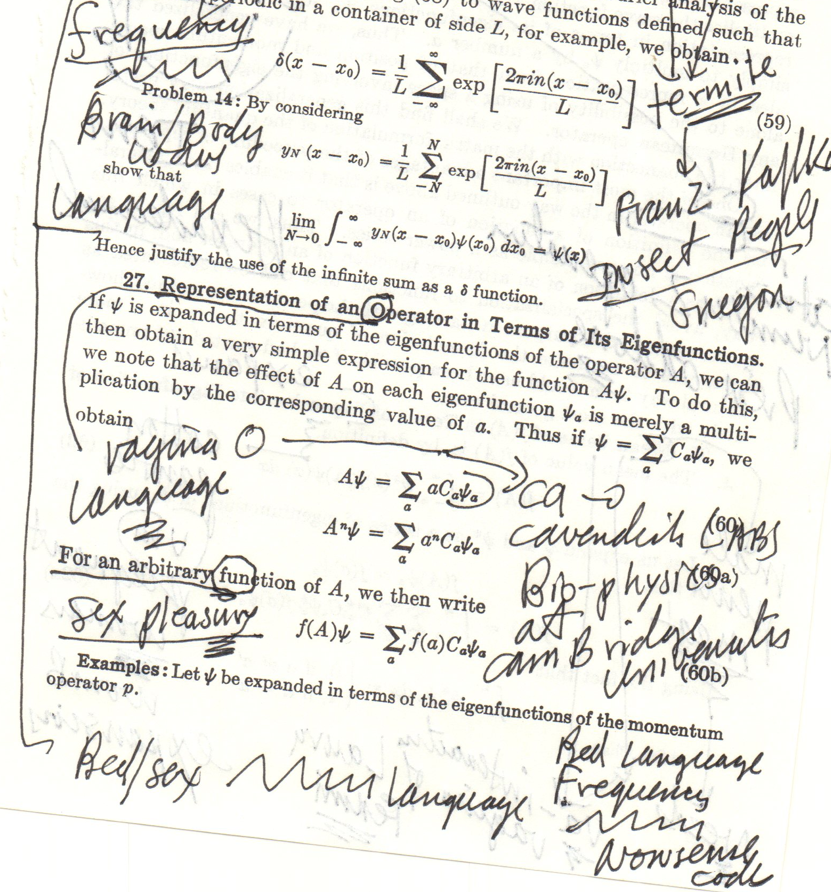 analysis of the
to wave functions defined such that
in a container of side L, for example, we obtain.
frequency
δ(x − x₀) = 1/L ∑_{−∞} exp [2πin(x − x₀)/L]
termite
(59)
Problem 14: By considering
Brain/Body
waves
y_N (x − x₀) = 1/L ∑_{−N}^{N} exp [2πin(x − x₀)/L]
show that
Language
Franz Kafka
Insect People
Gregor
lim_{N→0} ∫_{−∞}^{∞} y_N(x − x₀)ψ(x₀) dx₀ = ψ(x)
Hence justify the use of the infinite sum as a δ function.
27. Representation of an Operator in Terms of Its Eigenfunctions.
If ψ is expanded in terms of the eigenfunctions of the operator A, we can
then obtain a very simple expression for the function Aψ. To do this,
we note that the effect of A on each eigenfunction ψₐ is merely a multi-
plication by the corresponding value of a. Thus if ψ = ∑ₐ Cₐψₐ, we
obtain
vagina O
Language
Aψ = ∑ₐ aCₐψₐ
(60)
ca → o
cavendish LABS
Aⁿψ = ∑ₐ aⁿCₐψₐ
(60a)
Bio-physics
at
camBridge
For an arbitrary function of A, we then write
sex pleasure
f(A)ψ = ∑ₐ f(a)Cₐψₐ
(60b)
Examples: Let ψ be expanded in terms of the eigenfunctions of the momentum
operator p.
Bed/sex Language
Bed Language
Frequency
Nonsense
code